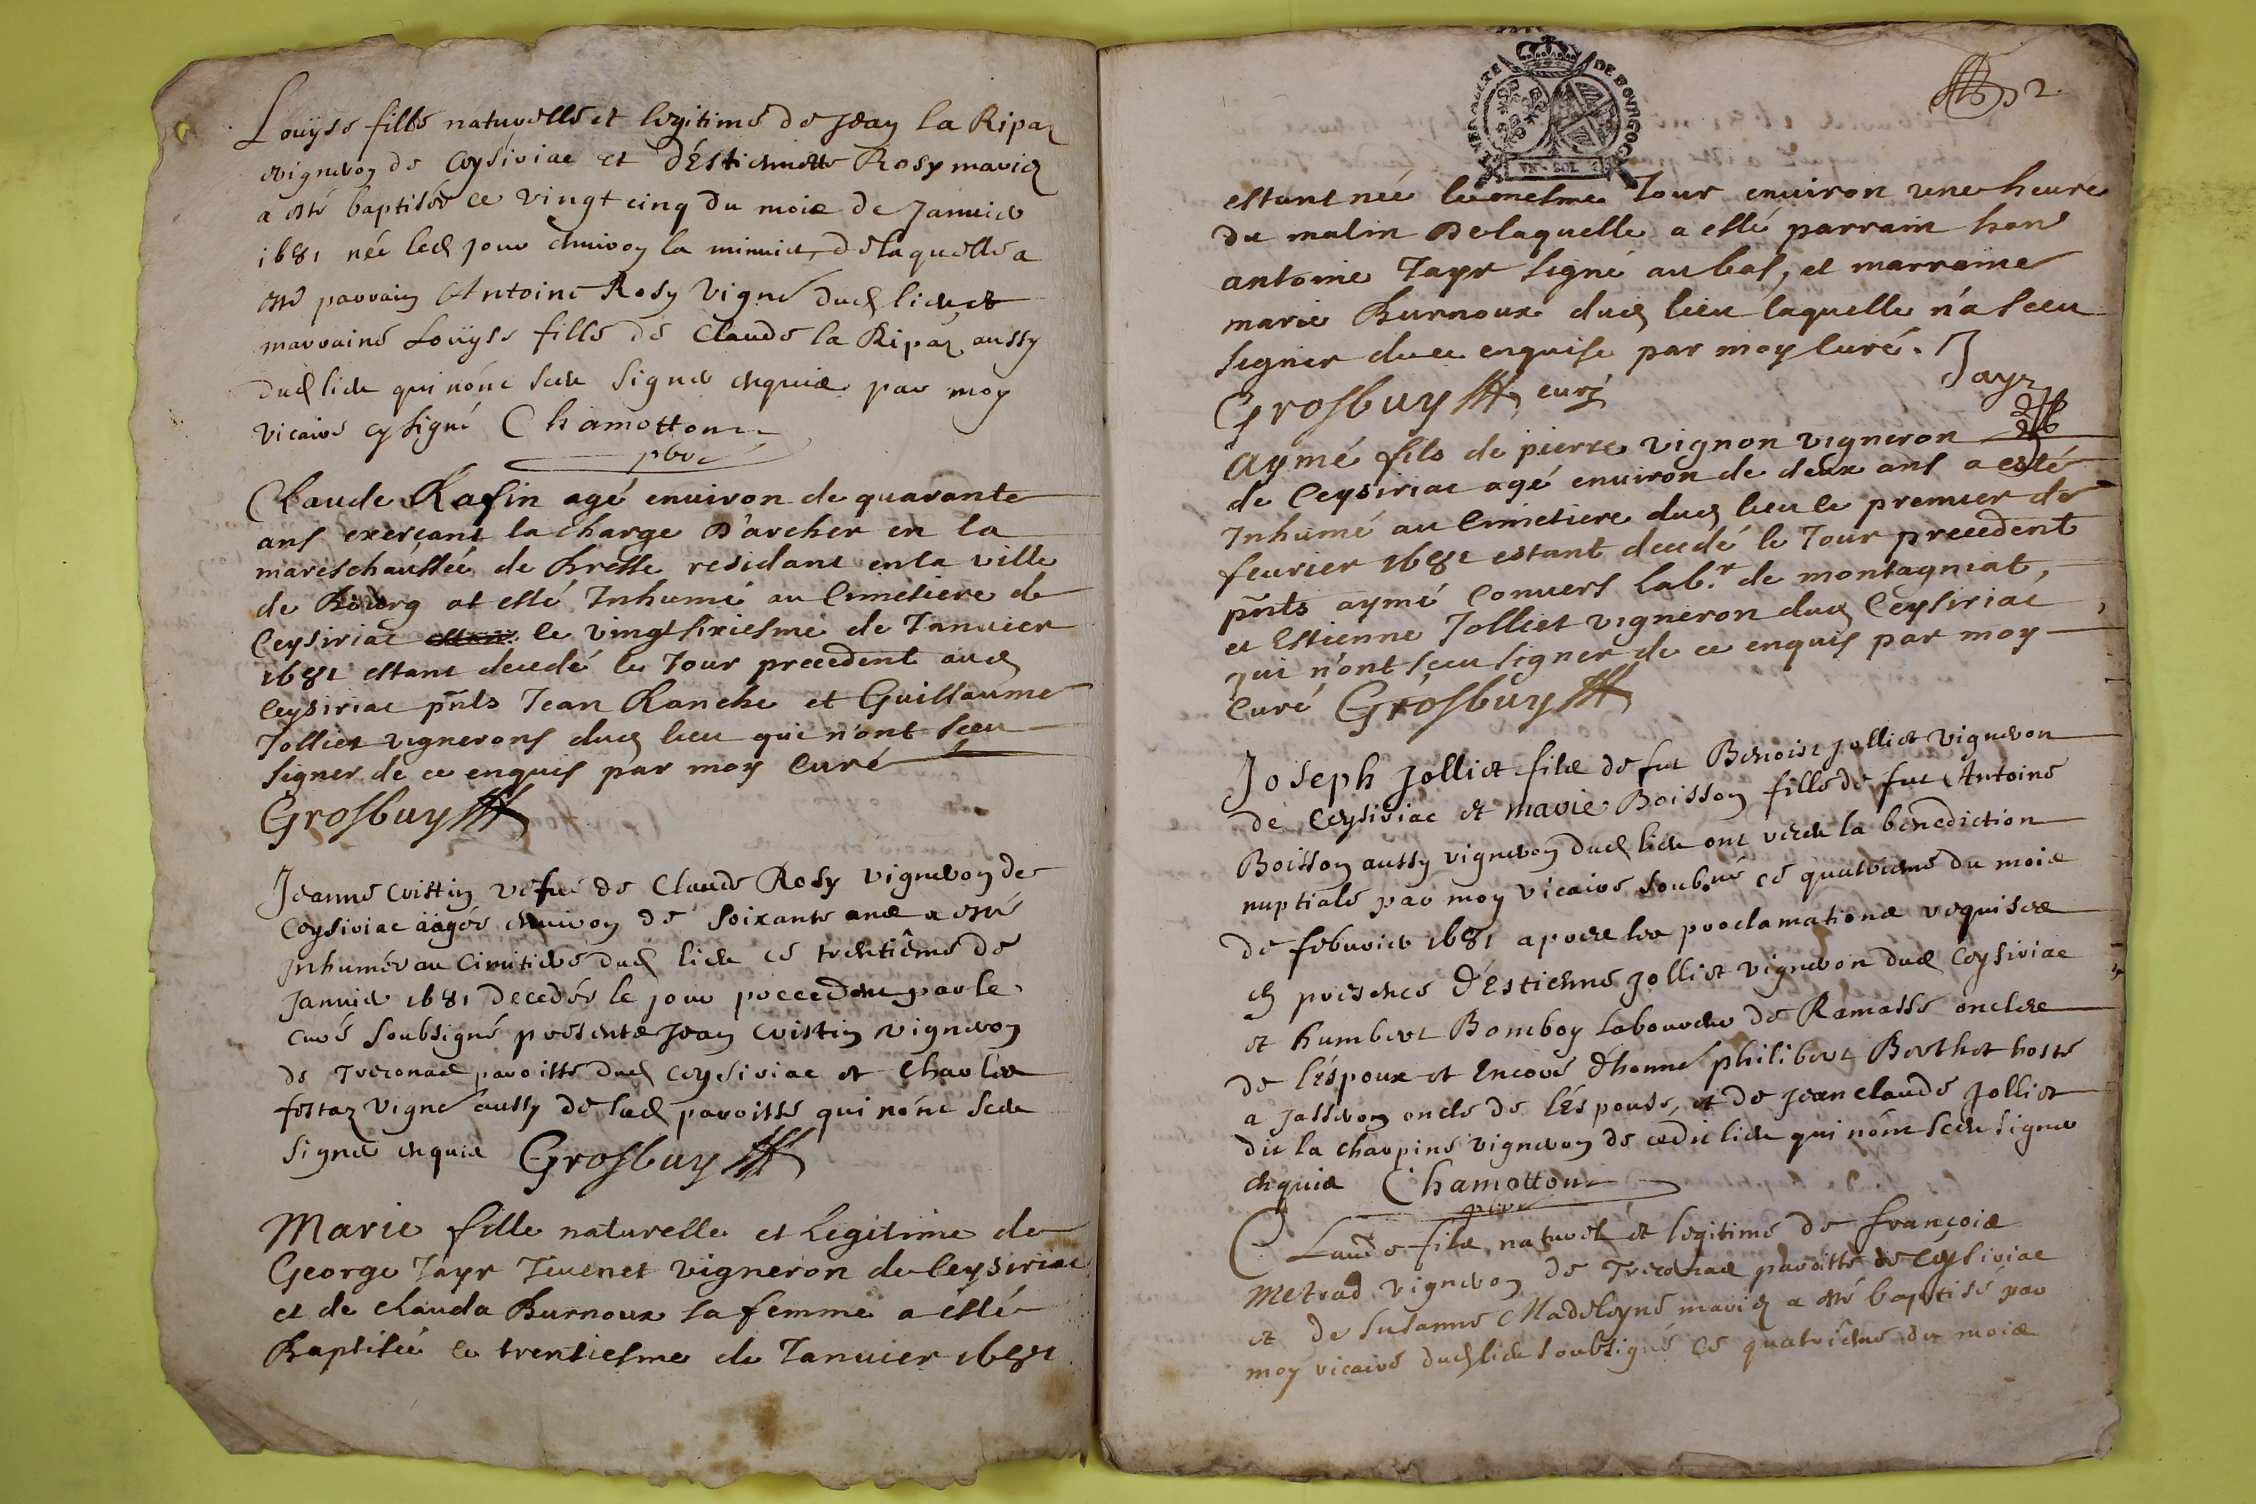 Louyse fille naturelle et legitime de Jean la Ripaz
vigneron de Ceysiriac et d'Estiennette Rosy mariez
a esté baptisée ce vingt cinq du mois de Janvier
1681 née led jour environ la minuict, de laquelle a
esté parrain Antoine Rosy vigne dud lieu et
marraine Loüyse fille de Claude la Ripaz aussy
dud lieu qui nont sceu signer enquis par moy
vicaire cy signé Chamotton
pbre
Claude Rafin agé enuiron de quarante
ans exerçant la charge d'archer en la
mareschaussée de Bresse residant en la ville
de Bourg at esté Inhumé au Cimetiere de
Ceysiriac le vingt sixiesme de Januier
1681 estant decedé le Jour precedent aud
Ceysiriac pñts Jean Ranche et Guillaume
Jolliet vignerons dud lieu qui n'ont sceu
signer de ce enquis par moy Curé
Grosbuy
Jeanne Cristin vefue de Claude Rosy vigneron de
Ceysiriac äagée environ de soixante ans a esté
Inhumée au Cimitiere dud lieu ce trentiême de
Janvier 1681 decedée le jour precedent par le
curé soubsigné presents Jean Cristin vigneron
de Treconas paroisse dud Ceysiriac et Charles
festaz vigne aussy de lad paroisse qui nont sceu
signer enquis Grosbuy
Marie fille naturelle et legitime de
George Jayr Jeuenet vigneron de Ceysiriac
et de clauda Burnoux sa femme a esté
Baptisée le trentiesme de Januier 1681
2
GENERALITE DE BOVRGOGNE
VN SOL
estant née le mesme Jour enuiron une heure
du matin De laquelle a esté parrain hon
antoine Jayr signé au bas, et marraine
marie Burnoux dud lieu laquelle n'a sceu
signer de ce enquise par moy Curé. Jayr
Grosbuy curé
aymé fils de pierre vignon vigneron
de Ceysiriac agé enuiron de deux ans a esté
Inhumé au Cimetiere dud lieu le premier de
feurier 1681 estant decedé le Jour precedent
pñts aymé Conuers lab.r de montagniat,
et Estienne Jolliet vigneron dud Ceysiriac
qui n'ont sceu signer de ce enquis par moy
Curé Grosbuy
Joseph Jolliet fils de fut Benoist Jolliet vigneron
de Ceysiriac et marie Boisson fille de fut Antoine
Boisson aussy vigneron dud lieu ont receu la benediction
nuptiale par moy vicaire soub.né ce quatriême du mois
de febvrier 1681 apres les proclamations requises
en presence d'Estienne Jolliet vigneron dud Ceysiriac
et humbert Bomboy laboureur de Ramasse oncles
de l'éspoux et Encore d'honne philibert Berthet hoste
a Jasseron oncle de l'éspouse, et de Jean claude Jolliet
dit la charpine vigneron de cedit lieu qui nont sceu signer
enquis Chamotton
pbre
Claude fils naturel et legitime de françois
Metrad vigneron de Treconas paroisse de Ceysiriac
et de Susanne Madeleyne mariez a esté baptisé par
moy vicaire dud lieu soubsigné ce quatriême du mois